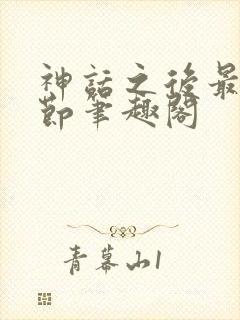 神話之後最
節筆趣閣
青幕山1